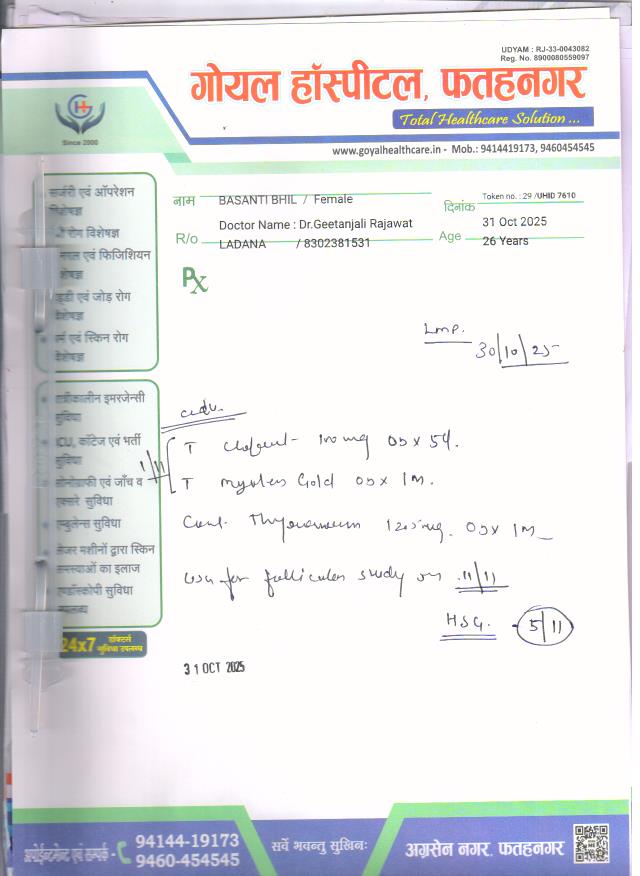 UDYAM : RJ-33-0043082
Reg. No. 8900080559097
गोयल हॉस्पीटल, फतहनगर
Total Healthcare Solution ...
Since 2000
www.goyalhealthcare.in - Mob.: 9414419173, 9460454545
नाम BASANTI BHIL / Female
Token no. : 29 /UHID 7610
दिनांक 31 Oct 2025
Doctor Name : Dr.Geetanjali Rajawat
R/o LADANA / 8302381531
Age 26 Years
Rx
सर्जरी एवं ऑपरेशन
रोग विशेषज्ञ
एवं फिजिशियन
एवं जोड़ रोग
स्किन रोग
इमरजेन्सी
सुविधा
ICU, कॉटेज एवं भर्ती
सुविधा
सोनोग्राफी एवं जाँच व
एक्सरे सुविधा
एम्बुलेन्स सुविधा
लेजर मशीनों द्वारा स्किन
समस्याओं का इलाज
एण्डोस्कोपी सुविधा
उपलब्ध
24x7 डॉक्टर्स
सुविधा उपलब्ध
LMP.
30/10/25
adv.
1/11
T 100 mg OD x 5d.
T Gold OD x 1M.
120 mg. OD x 1M
USG for follicular study on 11/11
HSG. 5/11
31 OCT 2025
अपोईन्टमेन्ट एवं सम्पर्क -
94144-19173
9460-454545
सर्वे भवन्तु सुखिनः
अग्रसेन नगर, फतहनगर